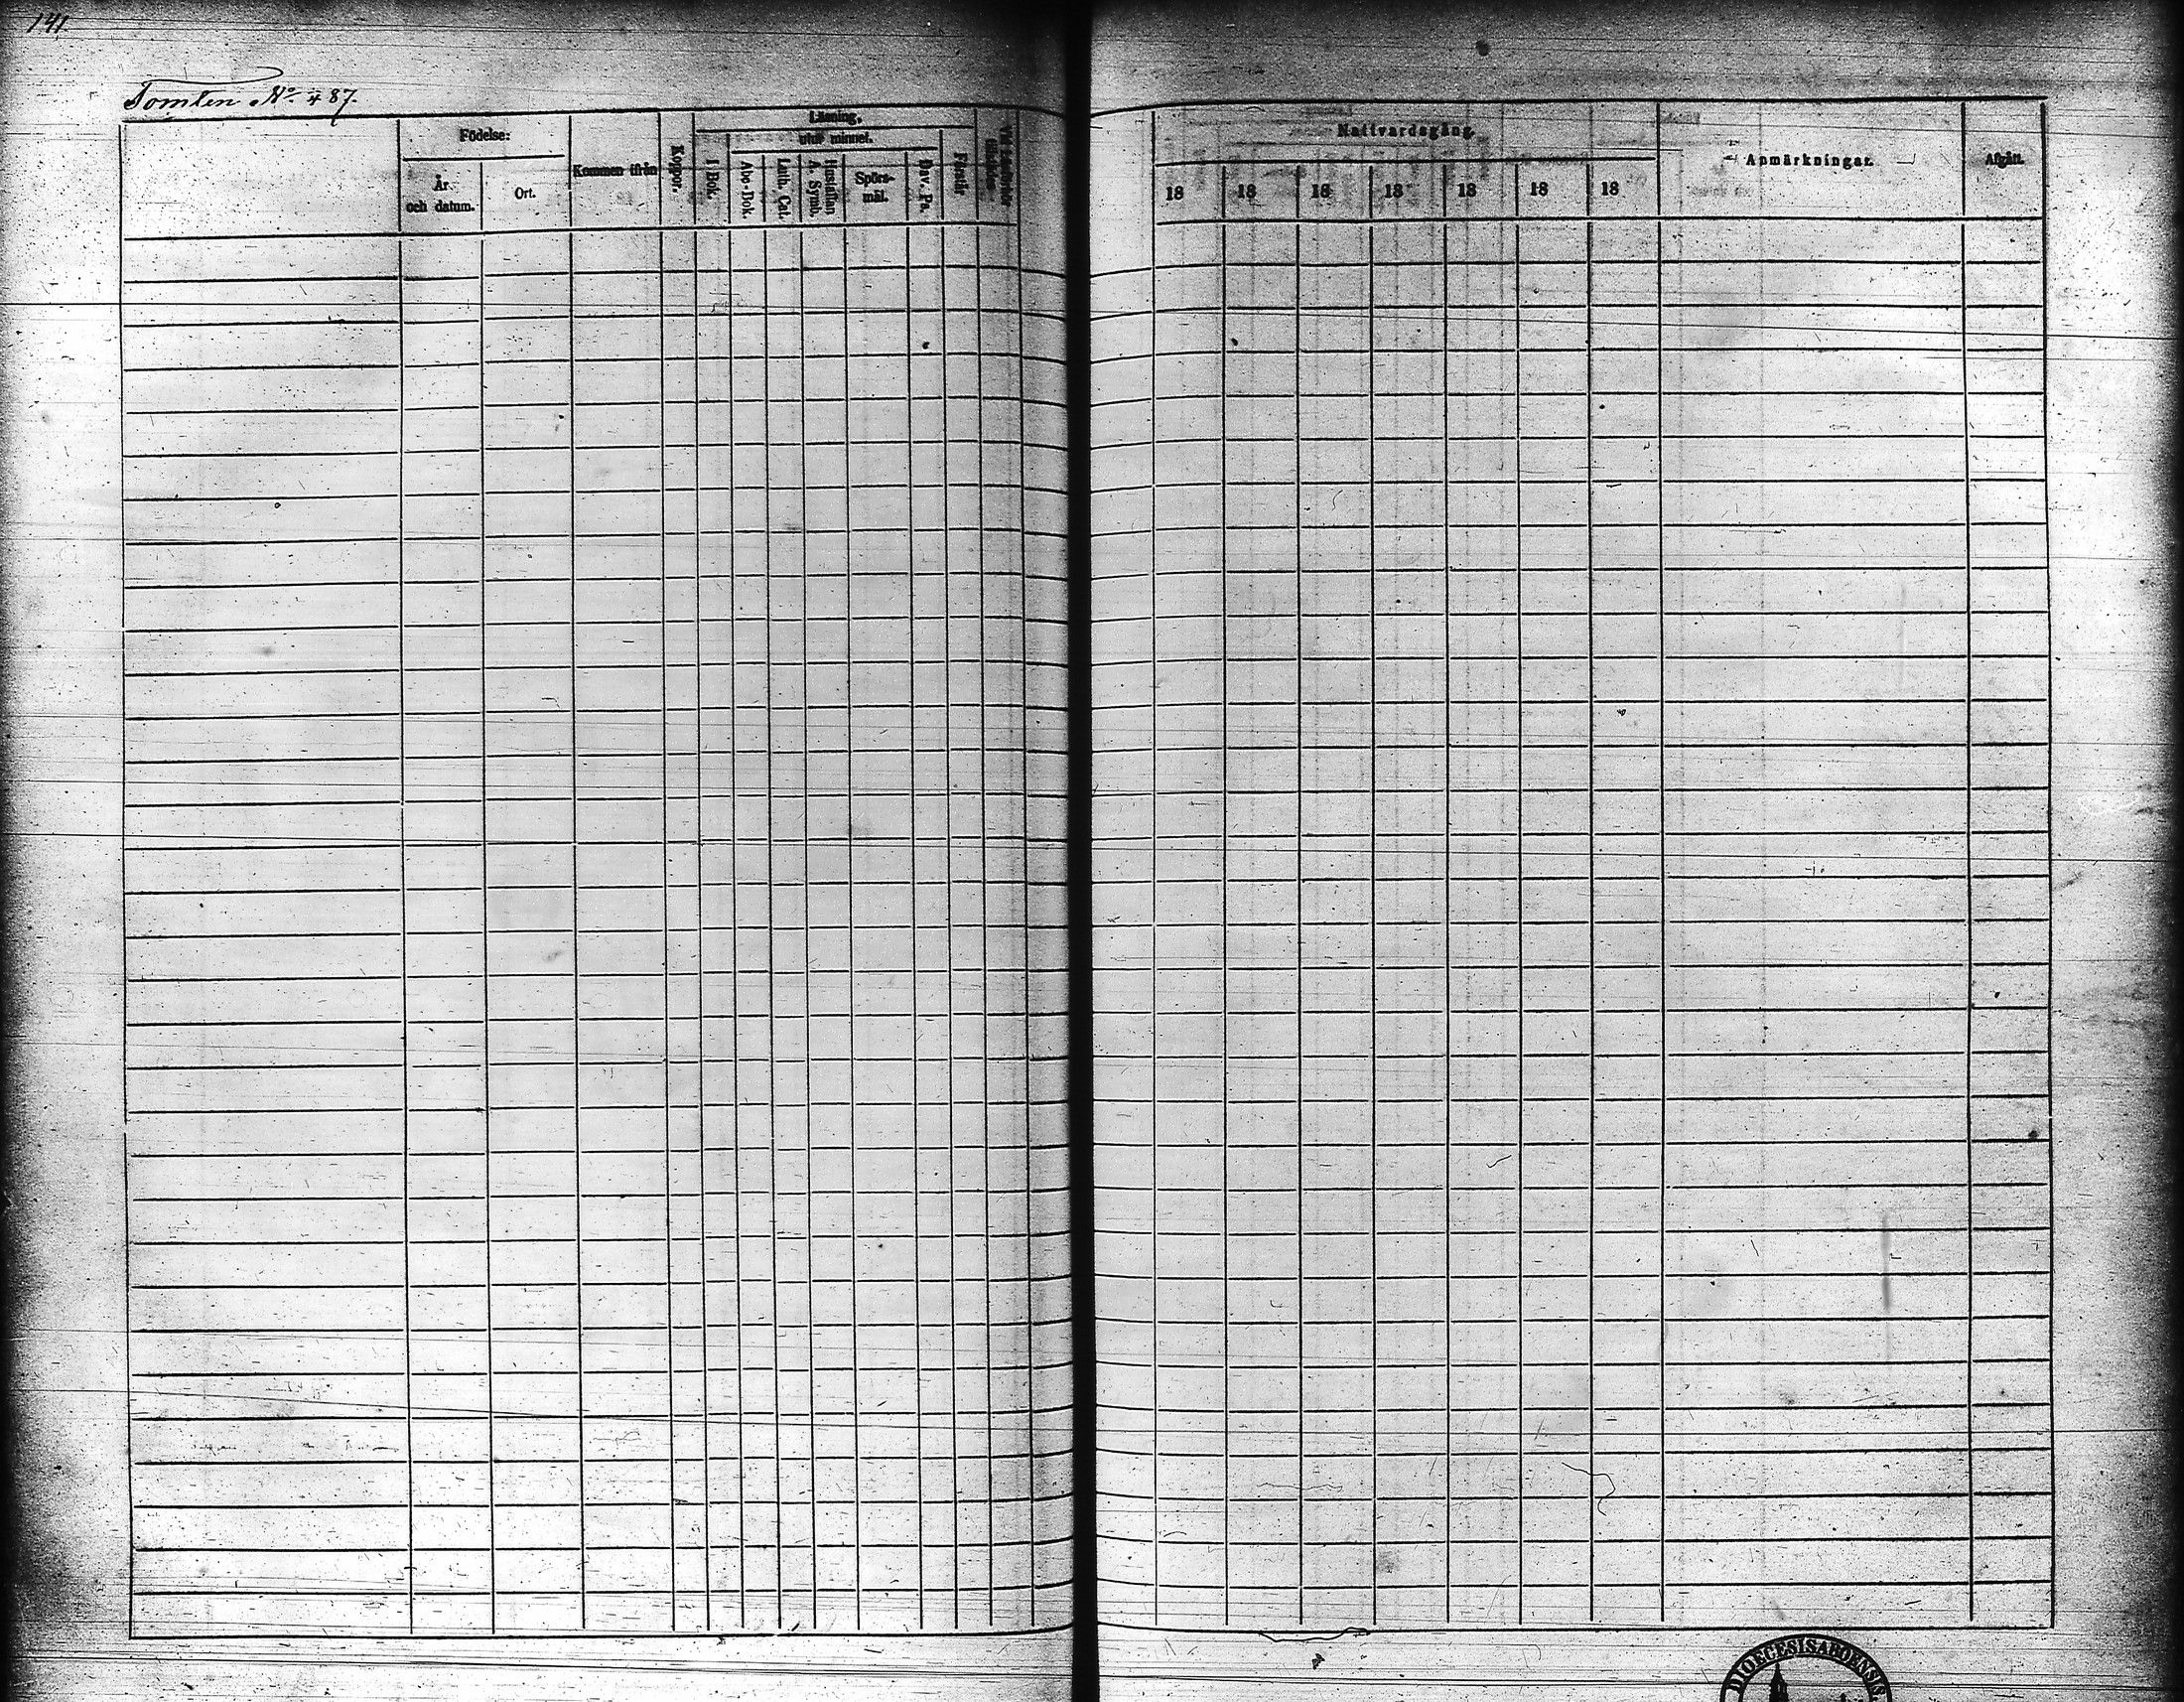 141.
Tomten No. 487.
Födelse:
År
och datum.
Ort.
Kommen ifrån
Koppor.
Läsning,
utur minnet.
I Bok.
Abc-Bok.
Luth. Cat.
Hustaflan
A. Symb.
Spörs-
mål.
Dav. Ps.
Förstår
Nattvardsgång.
18 18 18 18 18 18 18
Anmärkningar.
Afgått.
DIOECESIS ABOENSIS